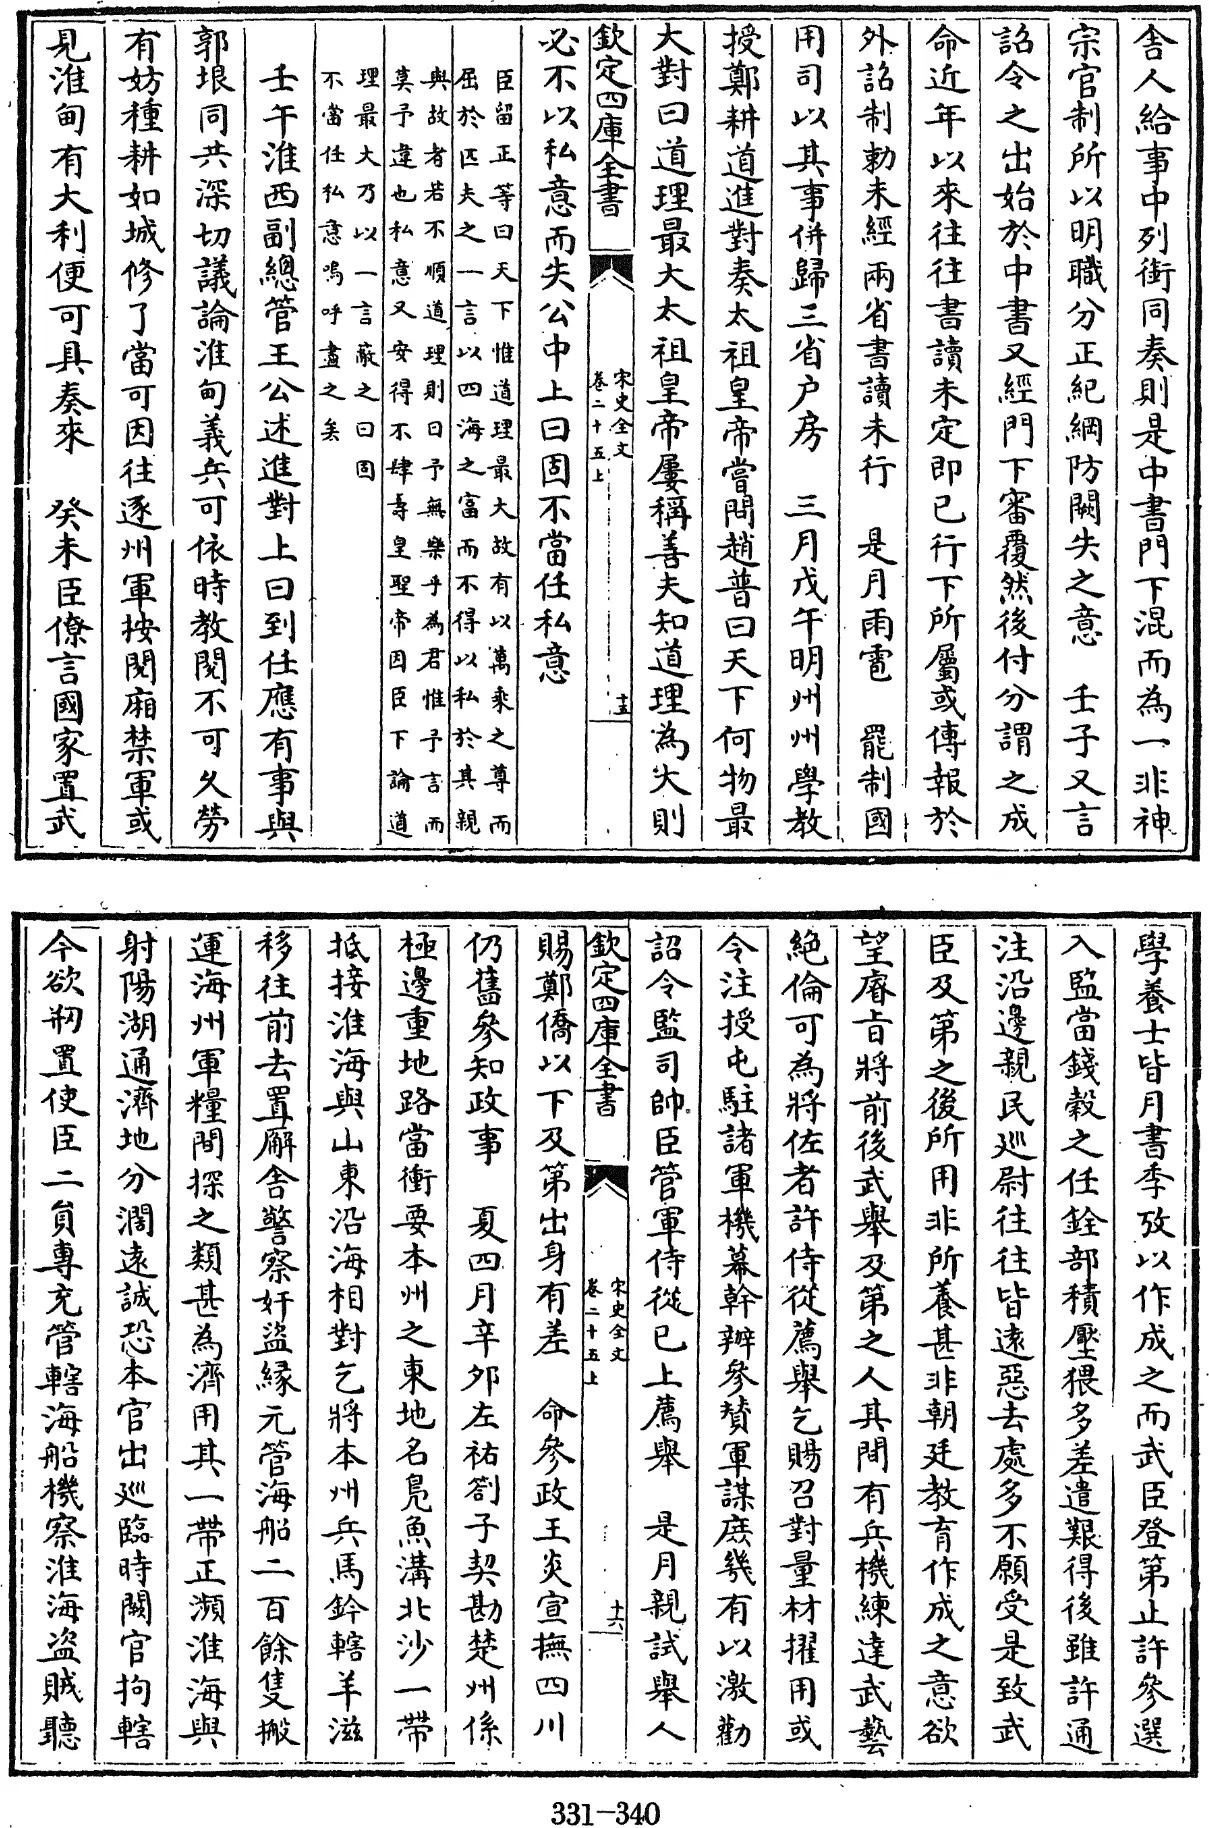 舎人給事中列銜同奏則是中書門下混而為一非神
宗官制所以明職分正紀綱防闕失之意　壬子又言
詔令之出始於中書又經門下審覆然後付分謂之成
命近年以來往往書讀未定即已行下所屬或傳報於
外詔制勅未經兩省書讀未行　是月雨雹　罷制國
用司以其事併歸三省户房　三月戊午明州州學教
授鄭耕道進對奏太祖皇帝嘗問趙普曰天下何物最
大對曰道理最大太祖皇帝屢稱善夫知道理為大則
欽定四庫全書
宋史全文
卷二十五上
十五
必不以私意而失公中上曰固不當任私意
臣留正等曰天下惟道理最大故有以萬乘之尊而
屈於匹夫之一言以四海之富而不得以私於其親
與故者若不順道理則曰予無樂乎為君惟予言而
莫予違也私意又安得不肆壽皇聖帝因臣下論道
理最大乃以一言蔽之曰固
不當任私意嗚呼盡之矣
壬午淮西副總管王公述進對上曰到任應有事與
郭垠同共深切議論淮甸義兵可依時教閱不可久勞
有妨種耕如城修了當可因往逐州軍按閱廂禁軍或
見淮甸有大利便可具奏來　癸未臣僚言國家置武
學養士皆月書季攷以作成之而武臣登第止許參選
入監當錢穀之任銓部積壓猥多差遣艱得後雖許通
注沿邊親民巡尉往往皆遠惡去處多不願受是致武
臣及第之後所用非所養甚非朝廷教育作成之意欲
望睿旨將前後武舉及第之人其間有兵機練達武藝
絶倫可為將佐者許侍從薦舉乞賜召對量材擢用或
令注授屯駐諸軍機幕幹辦參贊軍謀庶幾有以激勸
詔令監司帥臣管軍侍從已上薦舉　是月親試舉人
欽定四庫全書
宋史全文
卷二十五上
十六
賜鄭僑以下及第出身有差　命參政王炎宣撫四川
仍舊參知政事　夏四月辛夘左祐劄子契勘楚州係
極邊重地路當衝要本州之東地名鳬魚溝北沙一帶
抵接淮海與山東沿海相對乞將本州兵馬鈐轄羊滋
移往前去置廨舎警察奸盜縁元管海船二百餘隻搬
運海州軍糧間探之類甚為濟用其一帶正瀕淮海與
射陽湖通濟地分濶遠誠恐本官出巡臨時闕官拘轄
今欲剏置使臣二員專充管轄海船機察淮海盜賊聽
331-340